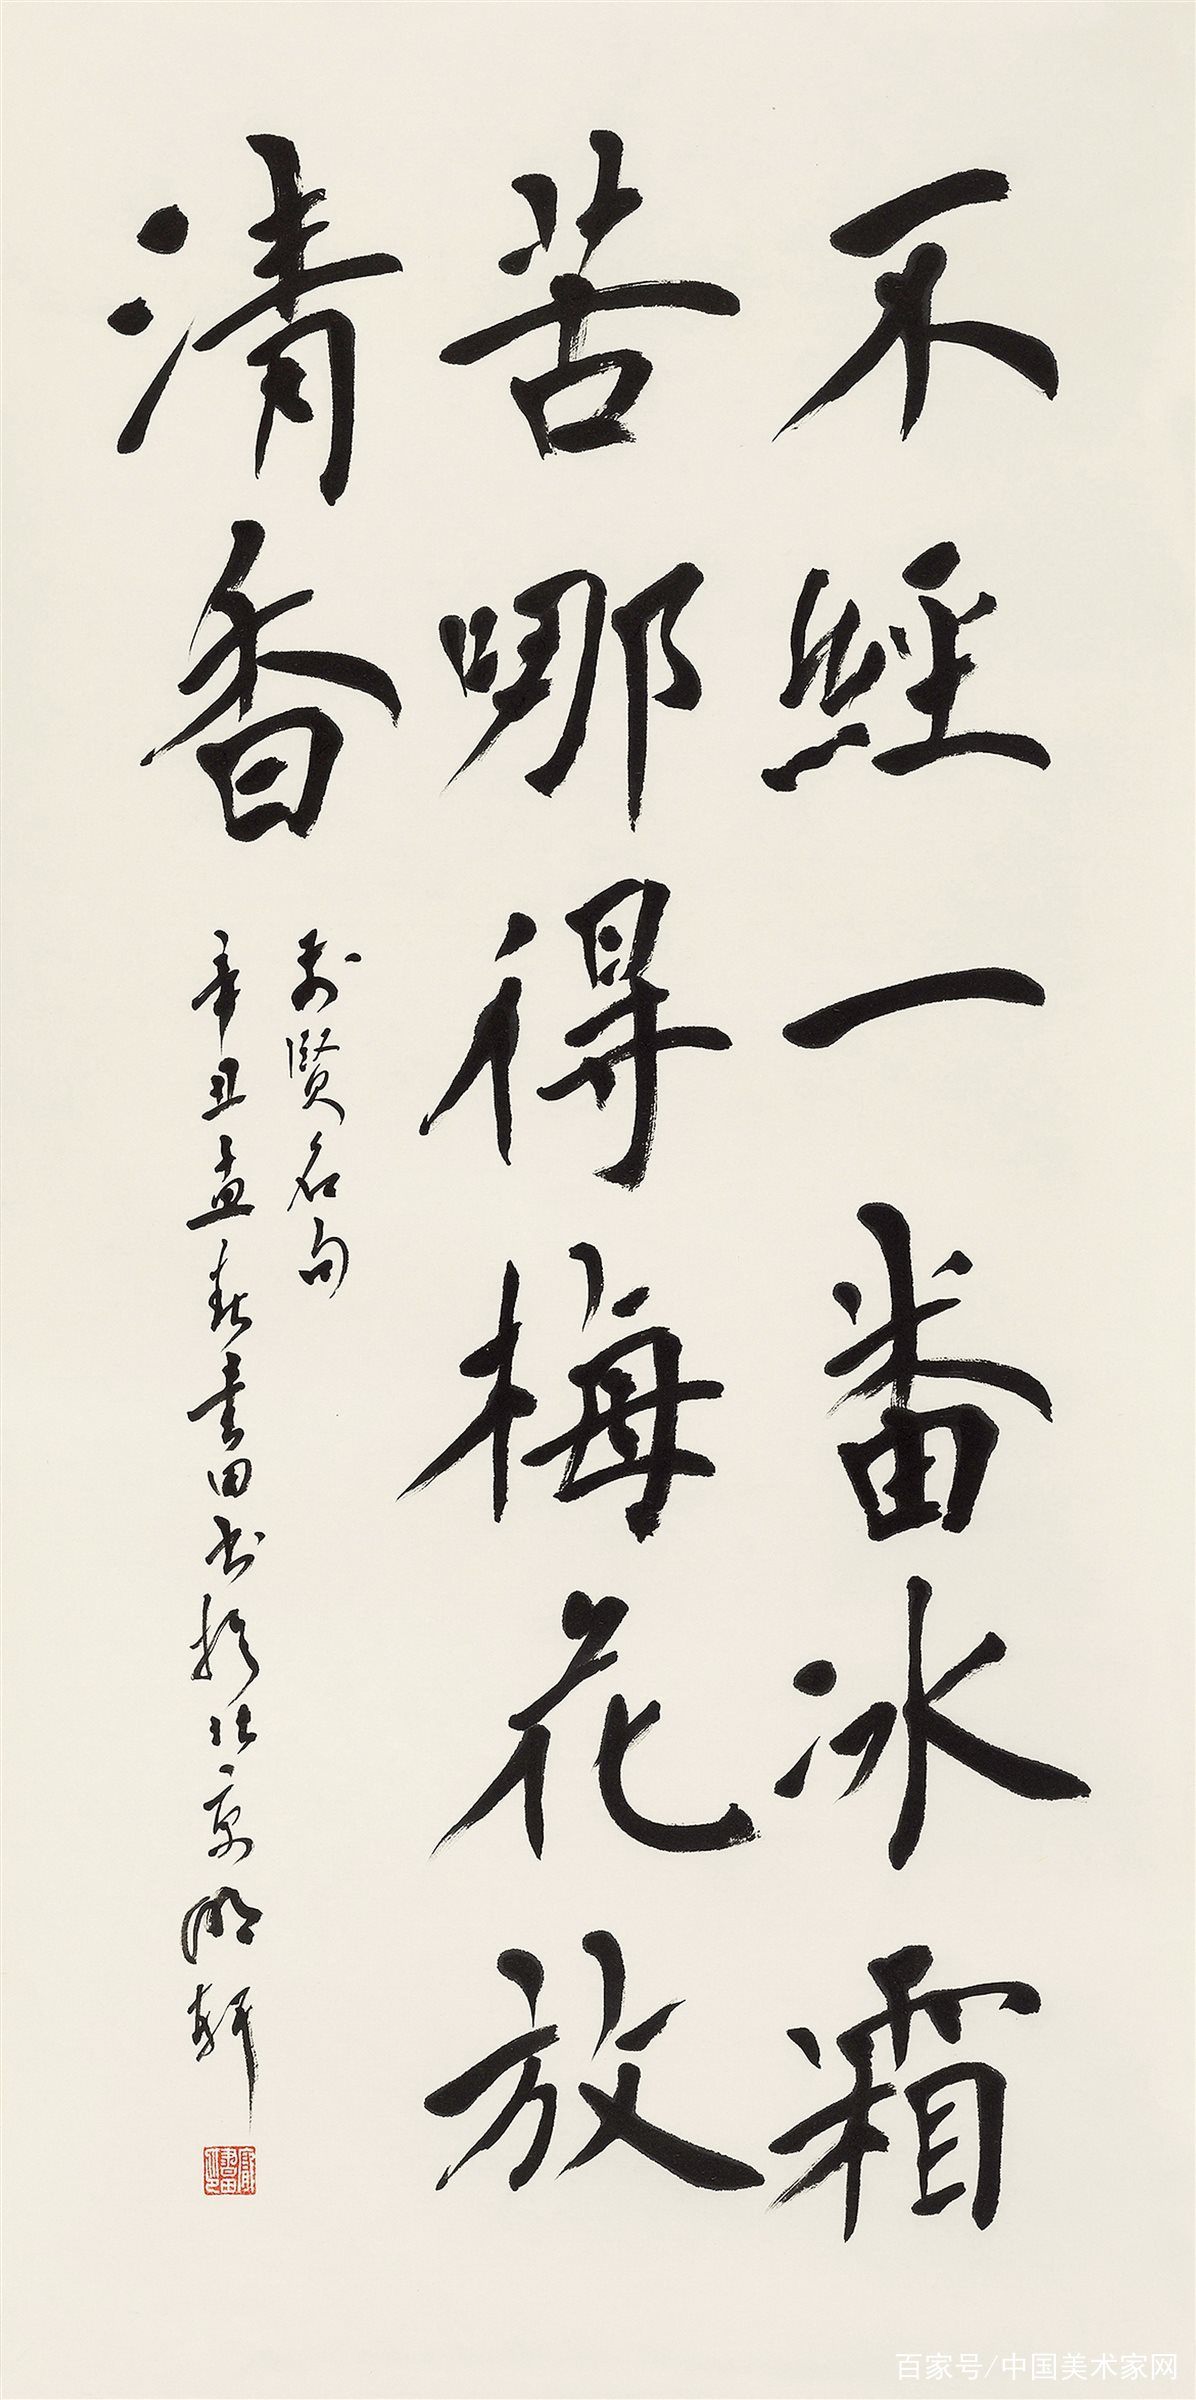 不經一番冰霜
苦哪得梅花放
清香
前賢名句
辛丑孟書田书於北京明軒
百家号/中国美术家网